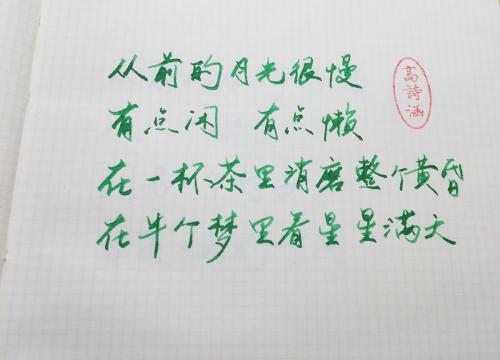 从前的月光很慢
有点闲 有点懒
在一杯茶里消磨整个黄昏
在半个梦里看星星满天
高詩涵